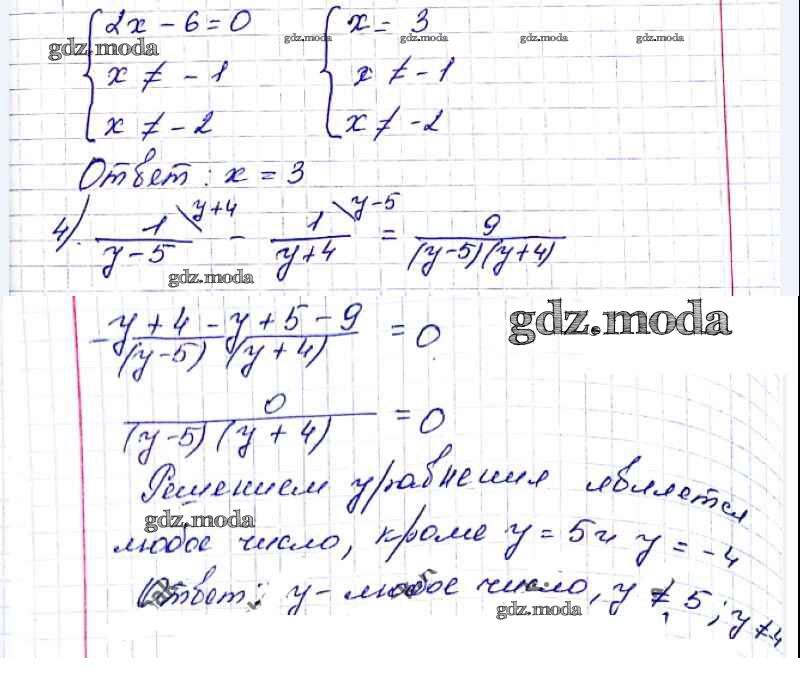 2x - 6 = 0 x = 3
gdz.moda gdz.moda gdz.moda gdz.moda gdz.moda
x ≠ - 1 x ≠ - 1
x ≠ - 2 x ≠ -2
gdz.moda
Ответ: x = 3
4). 1/(y - 5) \y+4 - 1/(y+4) \y-5 = 9/((y-5)(y+4))
gdz.moda
-y + 4 - y + 5 - 9/((y-5) (y + 4)) = 0
gdz.moda
0/((y-5) (y + 4)) = 0
Решением уравнения является
gdz.moda
любое число, кроме y = 5 и y = -4
Ответ: y - любое число, y ≠ 5; y ≠ -4
gdz.moda